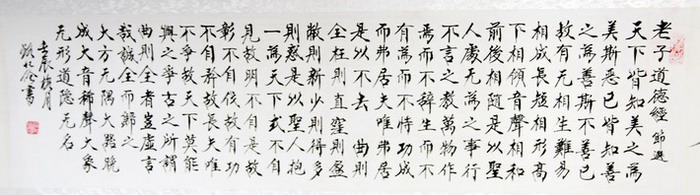 老子道德經 節選
天下皆知美之為
美斯惡已皆知善
之為善斯不善已
故有无相生難易
相成長短相形高
下相傾音聲相和
前後相隨是以聖
人處无為之事行
不言之教萬物作
焉而不辭生而不
有為而不恃功成
而弗居夫唯弗居
是以不去 曲則
全枉則直窪則盈
敝則新少則得多
則惑是以聖人抱
一為天下式不自
見故明不自是故
彰不自伐故有功
不自矜故長夫唯
不爭故天下莫能
與之爭古之所謂
曲則全者豈虛言
哉誠全而歸之
大方无隅大器晚
成大音稀聲大象
无形道隱无名
壬辰桂月
書